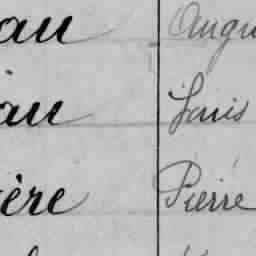 au Augu
au Louis
ère Pierre